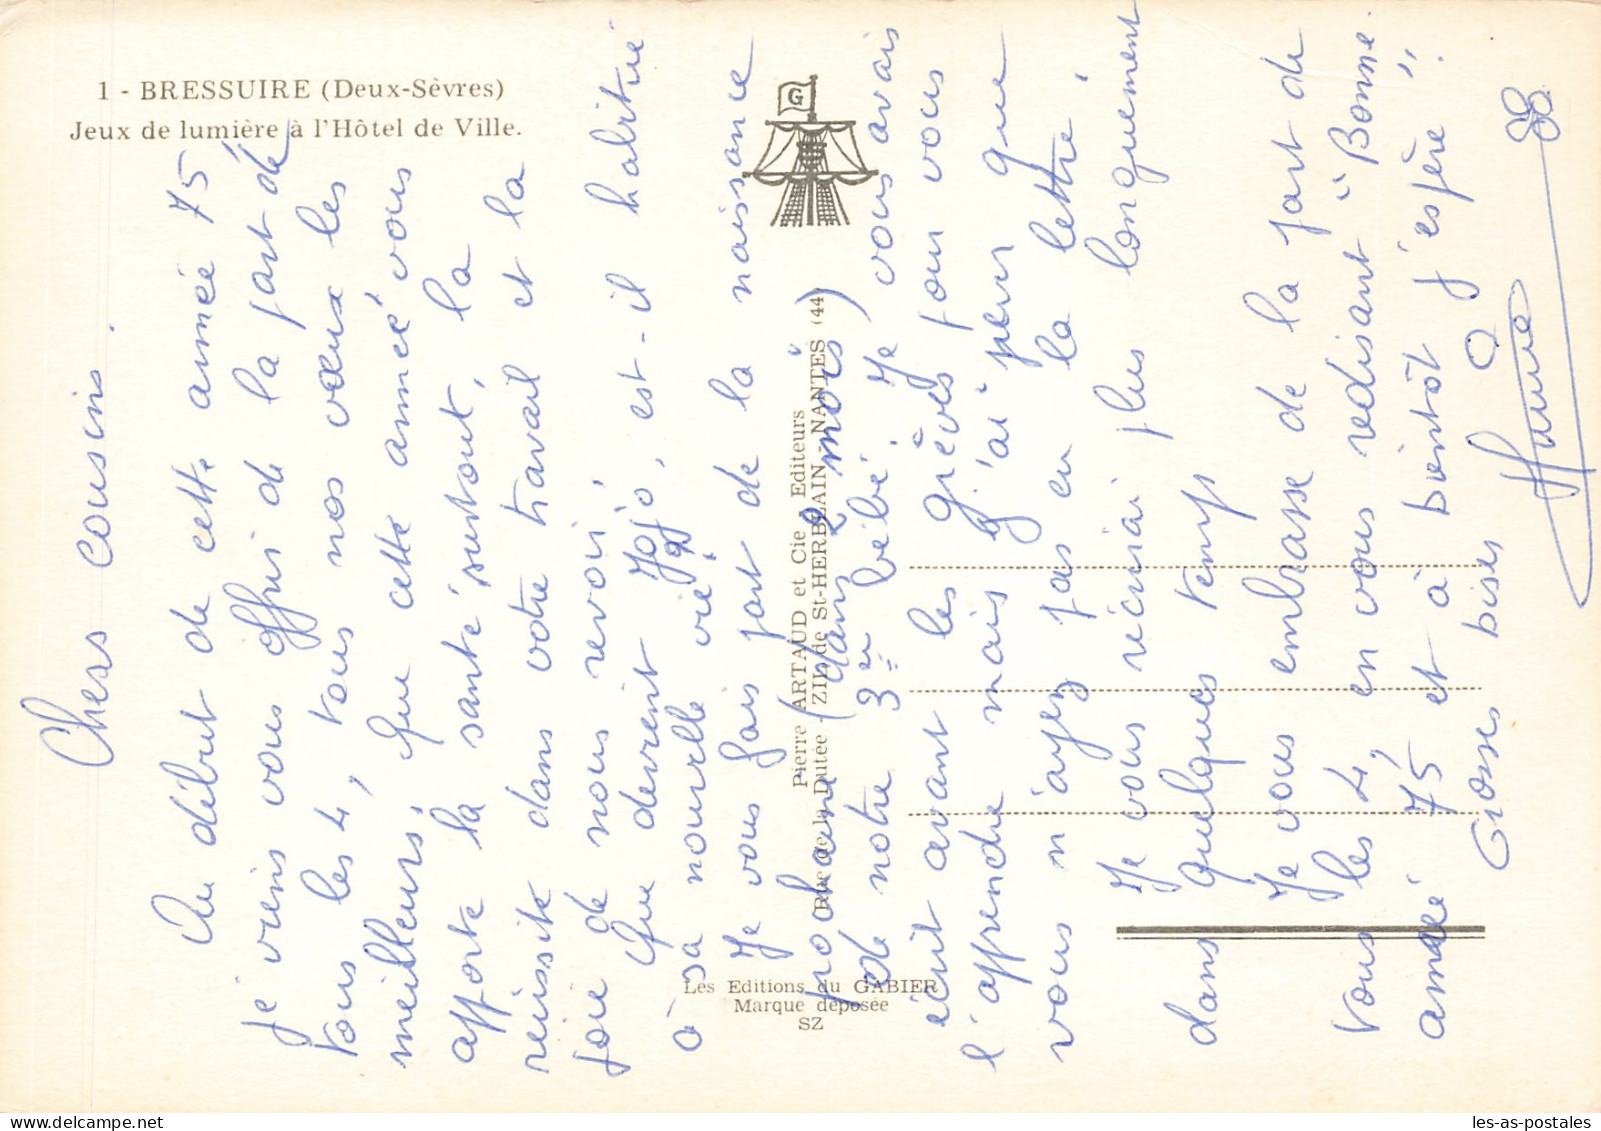 1 - BRESSUIRE (Deux-Sèvres)
Jeux de lumière à l'Hôtel de Ville.
G
Pierre ARTAUD et Cie Editeurs
Rue de la Dutée - ZIL de St-HERBLAIN - NANTES (44)
Les Editions du GABIER
Marque déposée
SZ
Chers cousins.
Au début de cette année 75
je viens vous offrir de la part de
tous les 4, tous nos vœux les
meilleurs, que cette année vous
apporte la santé surtout, la
réussite dans votre travail et la
joie de nous revoir.
Que devient Jojo, est-il habitué
à sa nouvelle vie?
Je vous fais part de la naissance
prochaine (dans 2 mois)
de notre 3e bébé. Je vous avais
écrit avant les grèves pour vous
l'apprendre mais j'ai peur que
vous n'ayez pas eu la lettre.
Je vous récrirai plus longuement
dans quelques temps
Je vous embrasse de la part de
tous les 4, en vous redisant "Bonne
année 75 et à bientôt j'espère".
Grosses bises
les-as-postales